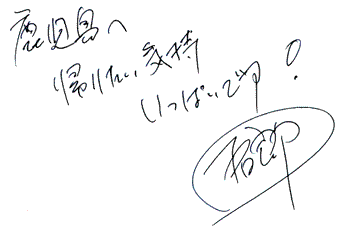 鹿児島へ
帰りたい気持
いっぱいです!